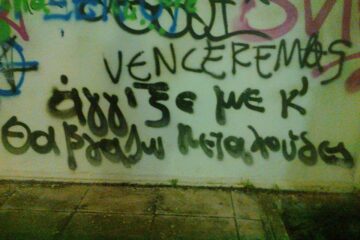 VENCEREMOS
άγγιξε με κ'
θα βγάζω πεταλούδες